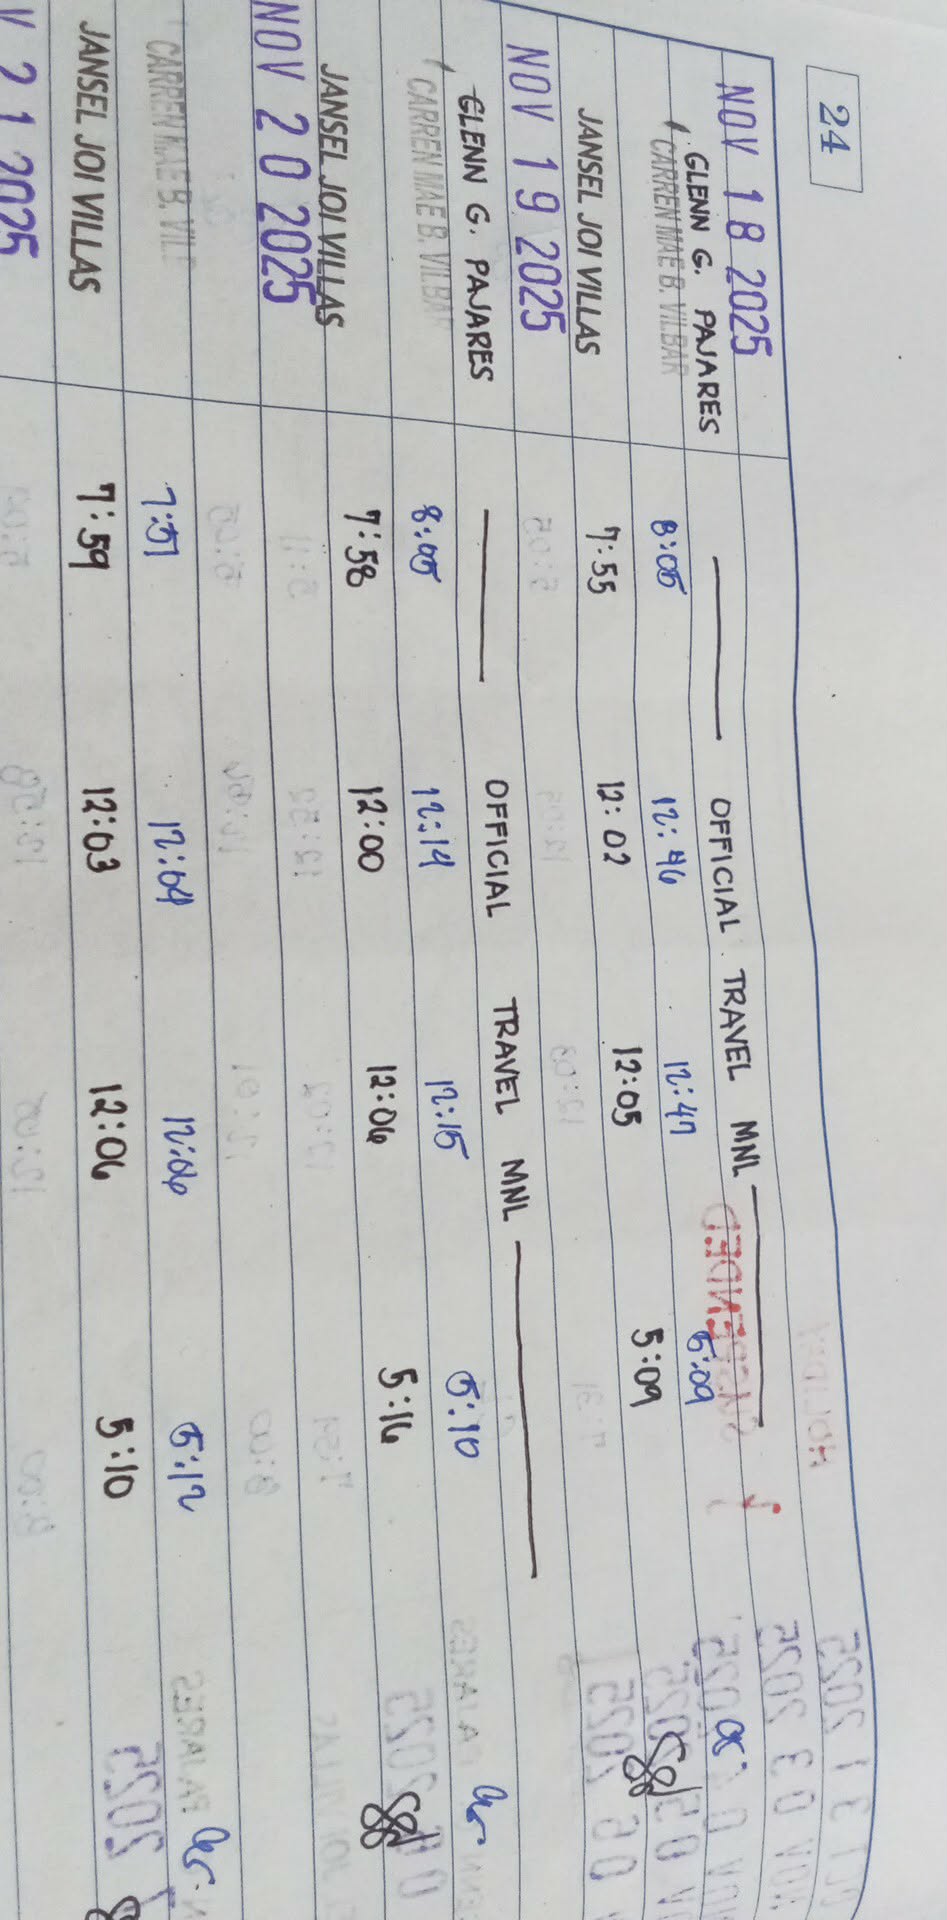 24
NOV 18 2025
GLENN G. PAJARES — OFFICIAL TRAVEL MNL —
CARREN MAE B. VILBAR 8:05 12:46 12:47 5:09
JANSEL JOI VILLAS 7:55 12:02 12:05 5:09
NOV 19 2025
GLENN G. PAJARES — OFFICIAL TRAVEL MNL —
CARREN MAE B. VILBAR 8:05 12:14 12:15 5:10
JANSEL JOI VILLAS 7:58 12:00 12:06 5:16
NOV 20 2025
CARREN MAE B. VIL 7:51 12:04 12:06 5:12
JANSEL JOI VILLAS 7:59 12:03 12:06 5:10
V 21 2025